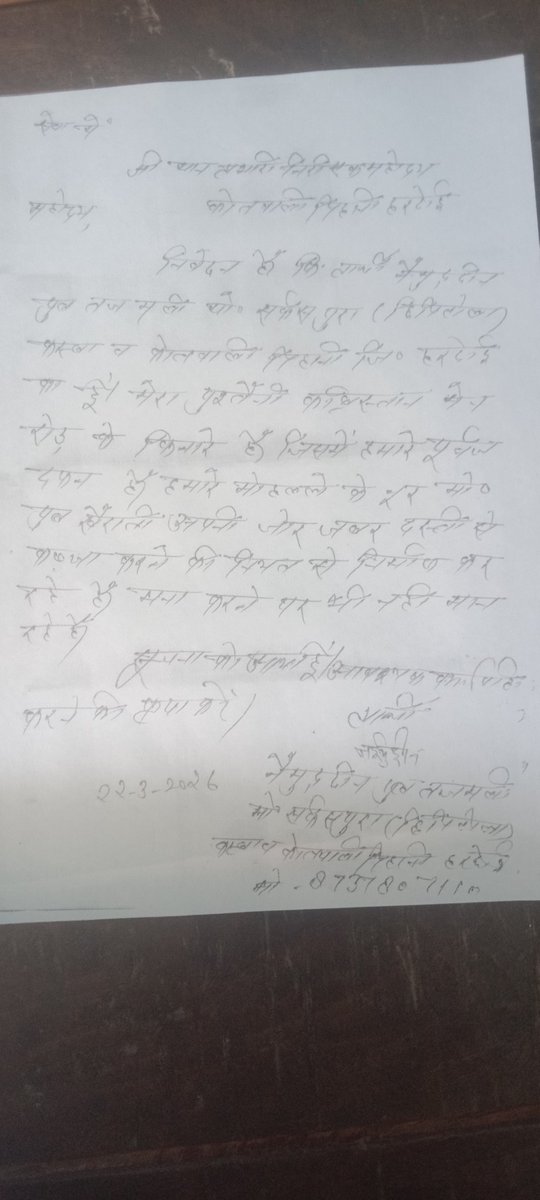 सेवा में
श्री मान प्रभारी निरीक्षक महोदय
महोदय, कोतवाली पिहानी हरदोई
निवेदन है कि प्रार्थी नैमुद्दीन
पुत्र तजमली मो०
कस्बा व कोतवाली पिहानी जि० हरदोई
का हूँ। मेरा पुश्तैनी कब्रिस्तान मेन
रोड के किनारे है जिसमें हमारे पूर्वज
दफन हैं हमारे मोहल्ले के नूर मो०
पुत्र खैराती अपनी जोर जबर दस्ती से
कब्जा करने की नियत से निर्माण कर
रहे हैं मना करने पर भी नही मान
रहे हैं।
सूचना को आया हूँ। आवश्यक
करने की कृपा करें।
प्रार्थी
22-3-2026 नैमुद्दीन पुत्र तजमली
मो०
कस्बा व कोतवाली पिहानी हरदोई
मो -